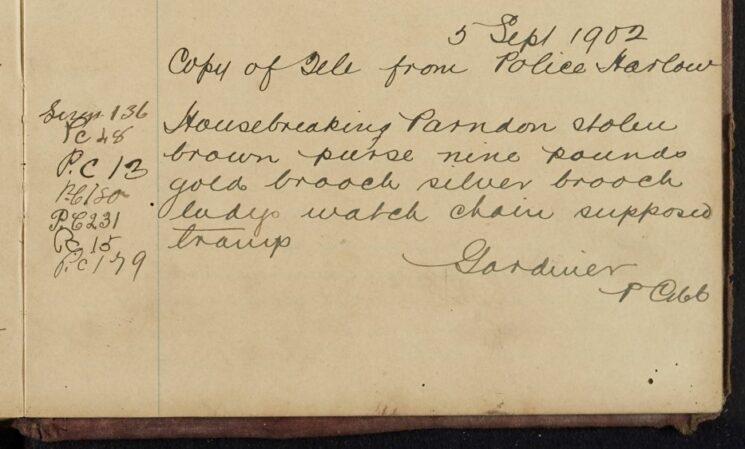 5 Sept 1902
Copy of Tele from Police Harlow
136
PC 48
P.C 13
P.C 180
P.C 231
PC 15
P.C 179
Housebreaking Parndon stolen
brown purse nine pounds
gold brooch silver brooch
ladys watch chain supposed
tramp
Gardiner